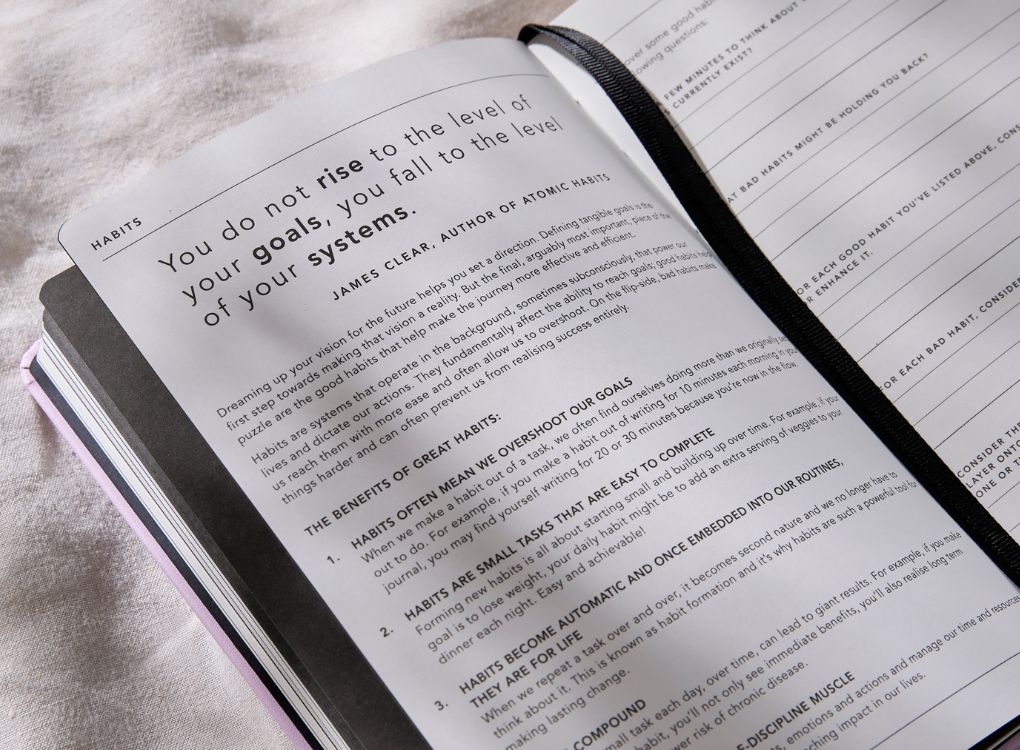 HABITS
You do not rise to the level of
your goals, you fall to the level
of your systems.
JAMES CLEAR, AUTHOR OF ATOMIC HABITS
Dreaming up your vision for the future helps you set a direction. Defining tangible goals is the
first step towards making that vision a reality. But the final, arguably most important, piece of the
puzzle are the good habits that help make the journey more effective and efficient.
Habits are systems that operate in the background, sometimes subconsciously, that power our
lives and dictate our actions. They fundamentally affect the ability to reach goals; good habits help
us reach them with more ease and often allow us to overshoot. On the flip-side, bad habits make
things harder and can often prevent us from realising success entirely.
THE BENEFITS OF GREAT HABITS:
1. HABITS OFTEN MEAN WE OVERSHOOT OUR GOALS
When we make a habit out of a task, we often find ourselves doing more than we originally set
out to do. For example, if you make a habit out of writing for 10 minutes each morning in your
journal, you may find yourself writing for 20 or 30 minutes because you're now in the flow.
2. HABITS ARE SMALL TASKS THAT ARE EASY TO COMPLETE
Forming new habits is all about starting small and building up over time. For example, if your
goal is to lose weight, your daily habit might be to add an extra serving of veggies to your
dinner each night. Easy and achievable!
3. HABITS BECOME AUTOMATIC AND ONCE EMBEDDED INTO OUR ROUTINES,
THEY ARE FOR LIFE
When we repeat a task over and over, it becomes second nature and we no longer have to
think about it. This is known as habit formation and it's why habits are such a powerful tool for
making lasting change.
COMPOUND
small task each day, over time, can lead to giant results. For example, if you make
habit, you'll not only see immediate benefits, you'll also realise long term
wer risk of chronic disease.
-DISCIPLINE MUSCLE
ts, emotions and actions and manage our time and resources
aching impact in our lives.
over some good habi
lowing questions:
FEW MINUTES TO THINK ABOUT
CURRENTLY EXIST?
AT BAD HABITS MIGHT BE HOLDING YOU BACK?
OR EACH GOOD HABIT YOU'VE LISTED ABOVE, CONS
R ENHANCE IT.
FOR EACH BAD HABIT, CONSIDE
CONSIDER THE
LAYER ONTO
ONE OF THE